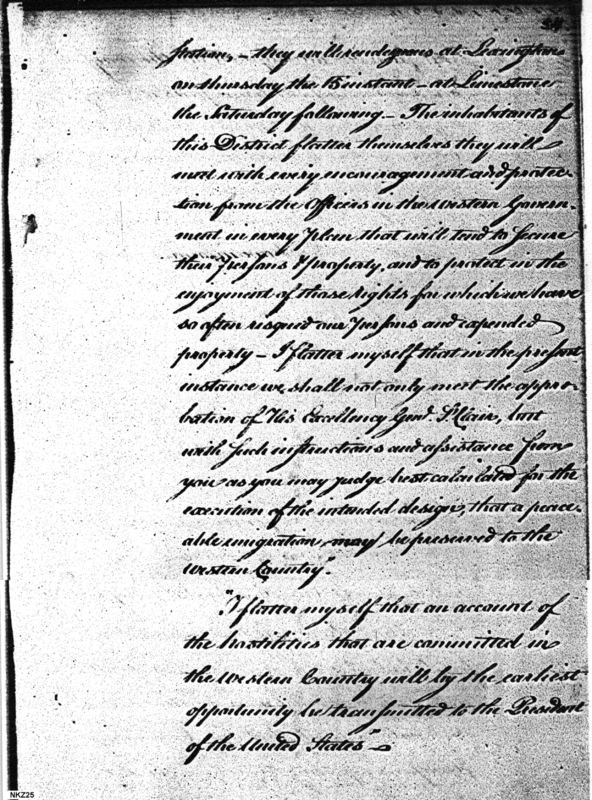 station, – they will rendezvous at Lexington
on thursday the 15 instant – at Limestone
the Saturday following – The inhabitants of
this District flatter themselves they will
meet with every encouragement and protec-
tion from the Officers in the western Govern-
ment in every plan that will tend to secure
their persons & property, and to protect in the
enjoyment of those rights for which we have
so often risqued our persons and expended
property – I flatter myself that in the present
instance we shall not only meet the appro-
bation of His Excellency Govr. St. Clair, but
with such instructions and assistance from
you as you may judge best calculated for the
execution of the intended design, that a peace-
able emigration may be preserved to the
western Country".
"I flatter myself that an account of
the hostilities that are committed in
the western Country will by the earliest
opportunity be transmitted to the President
of the United States" –
NKZ25